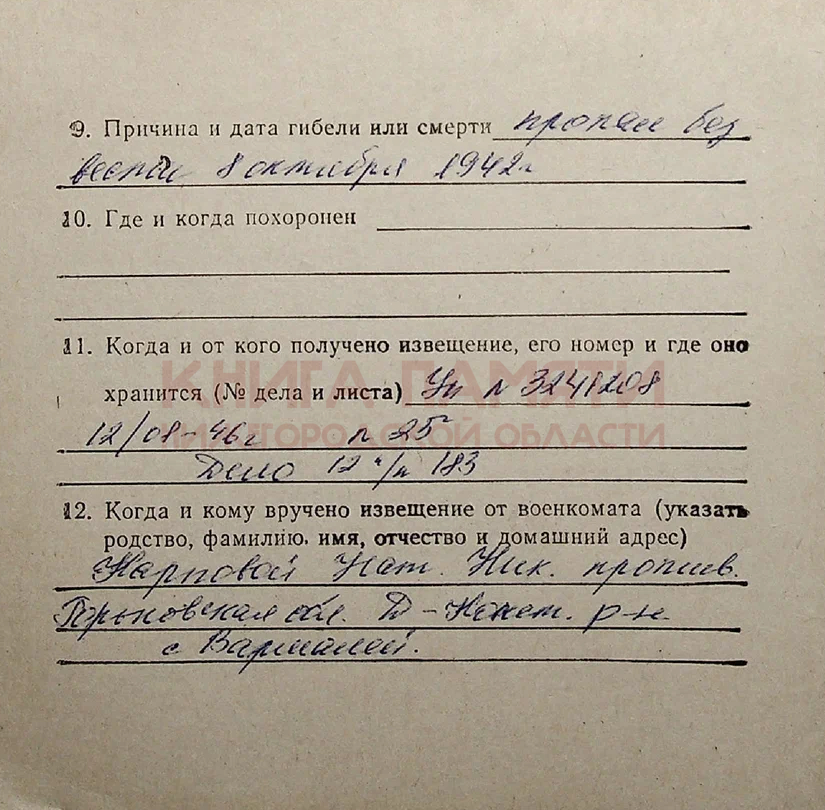 9. Причина и дата гибели или смерти пропал без
вести 8 октября 1942г
10. Где и когда похоронен
11. Когда и от кого получено извещение, его номер и где оно
КНИГА ПАМЯТИ
хранится (№ дела и листа) Уп №3241208
12/08-46г л 25
НИЖЕГОРОДСКОЙ ОБЛАСТИ
Дело 12 183
12. Когда и кому вручено извещение от военкомата (указать
родство, фамилию, имя, отчество и домашний адрес)
Карповой Нат. Ник. прожив.
Горьковская обл. Д-Конст. р-н.
с Вармалей.